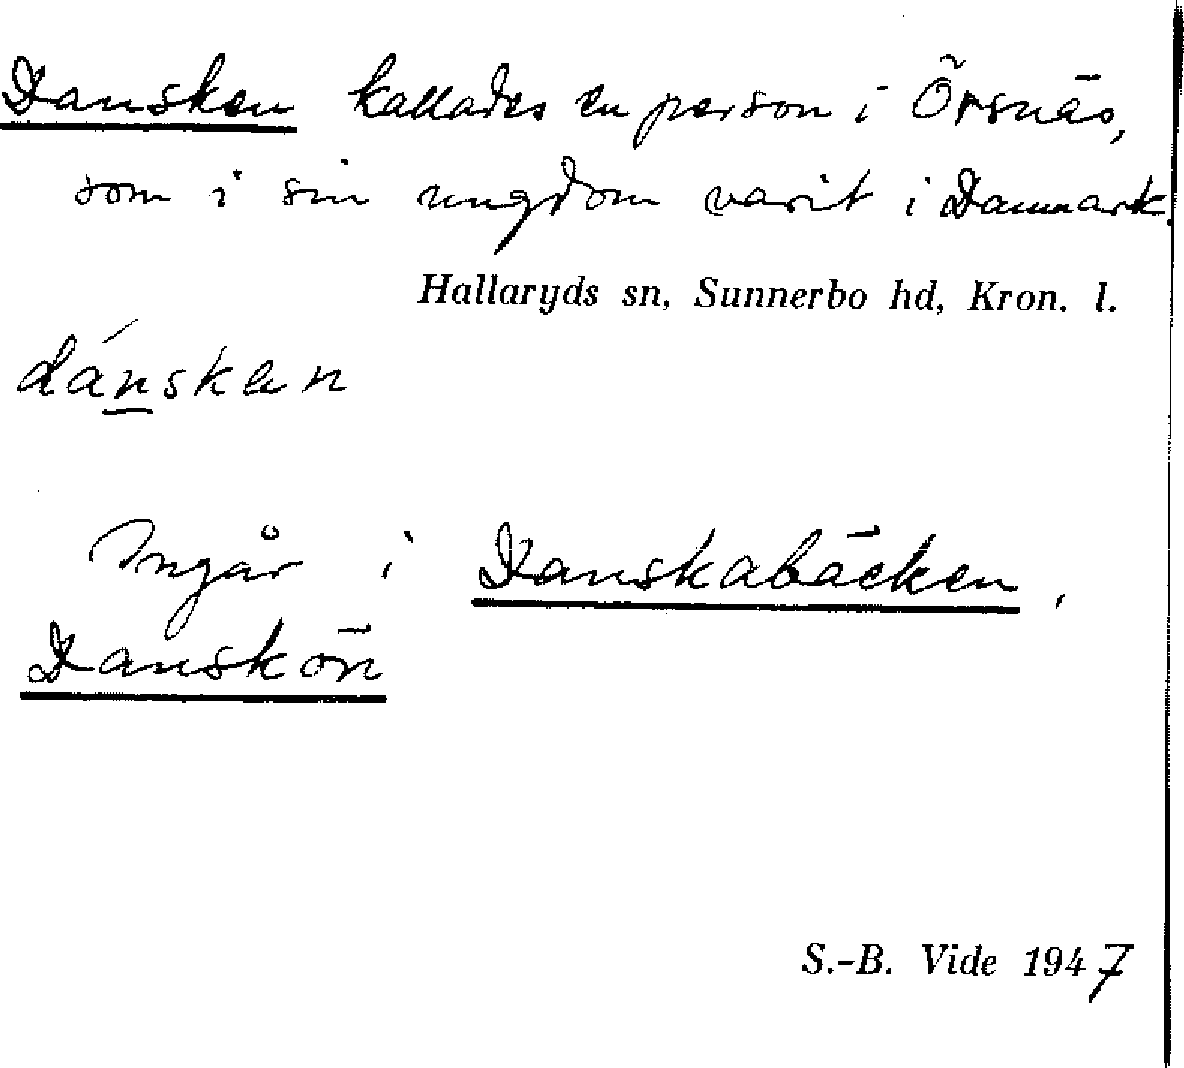 Dansken kallades en person i Örsnäs,
som i sin ungdom varit i Danmark.
Hallaryds sn, Sunnerbo hd, Kron. l.
dánskan
Ingår i Danskabäcken,
Danskön
S.-B. Vide 1947